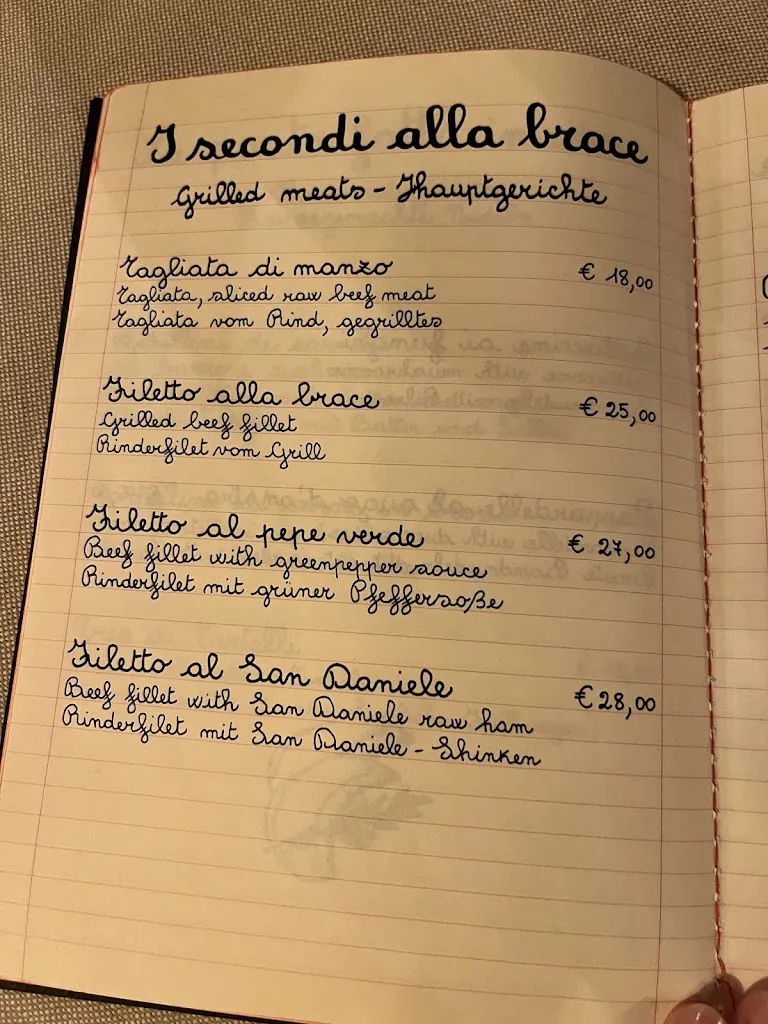 I secondi alla brace
Grilled meats - Hauptgerichte
Tagliata di manzo € 18,00
Tagliata, sliced raw beef meat
Tagliata vom Rind, gegrilltes
Filetto alla brace € 25,00
Grilled beef fillet
Rinderfilet vom Grill
Filetto al pepe verde € 27,00
Beef fillet with greenpepper souce
Rinderfilet mit grüner Pfeffersoße
Filetto al San Daniele € 28,00
Beef fillet with San Daniele raw ham
Rinderfilet mit San Daniele - Shinken